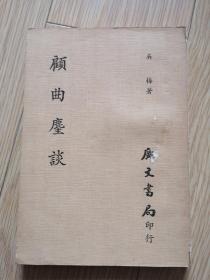 吳梅著
顧曲麈談
廣文書局印行